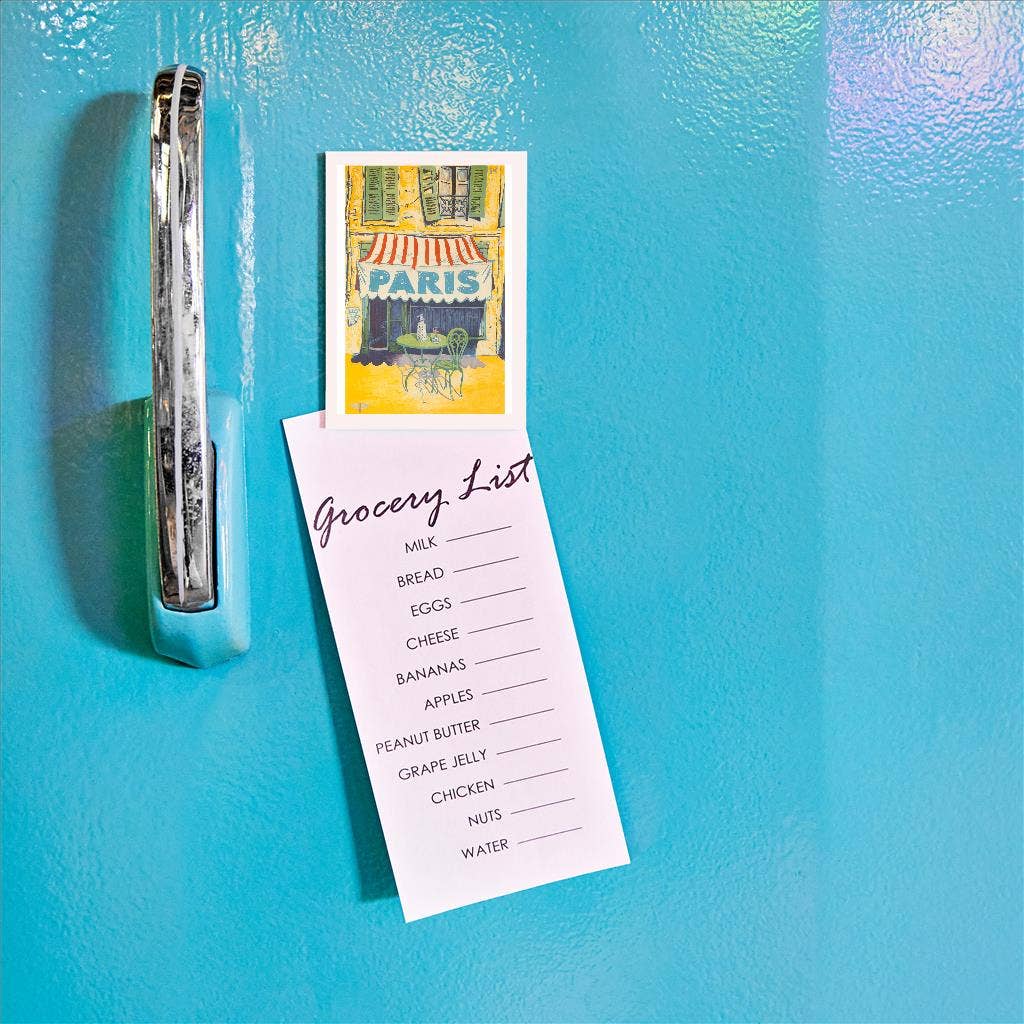 PARIS
Grocery List
MILK
BREAD
EGGS
CHEESE
BANANAS
APPLES
PEANUT BUTTER
GRAPE JELLY
CHICKEN
NUTS
WATER